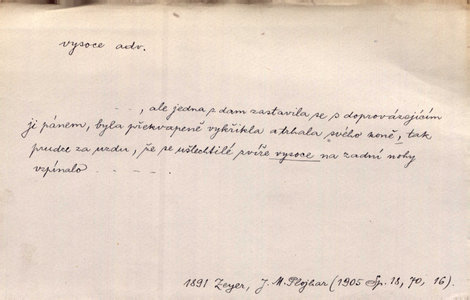 vysoce adv.
- - -, ale jedna z dam zastavila se s doprovázejícím
ji pánem, byla překvapeně vykřikla a trhala svého koně, tak
prudce za uzdu, že se ušlechtilé zvíře vysoce na zadní nohy
vzpínalo - - - - -
1891 Zeyer, J. M. Plojhar (1905 Sp. 18, 70, 16).